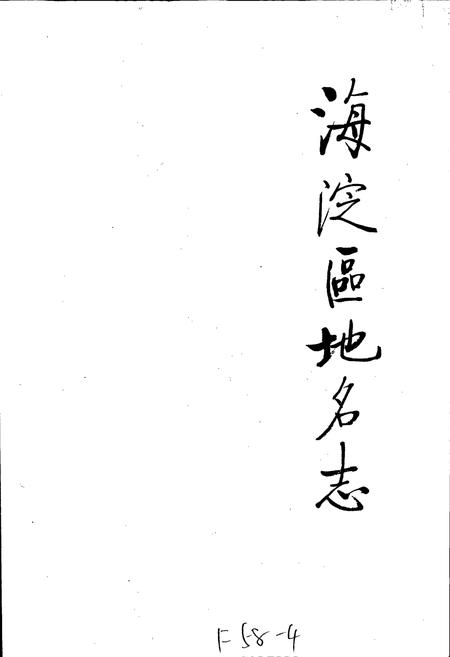 海淀區地名志
F58-4